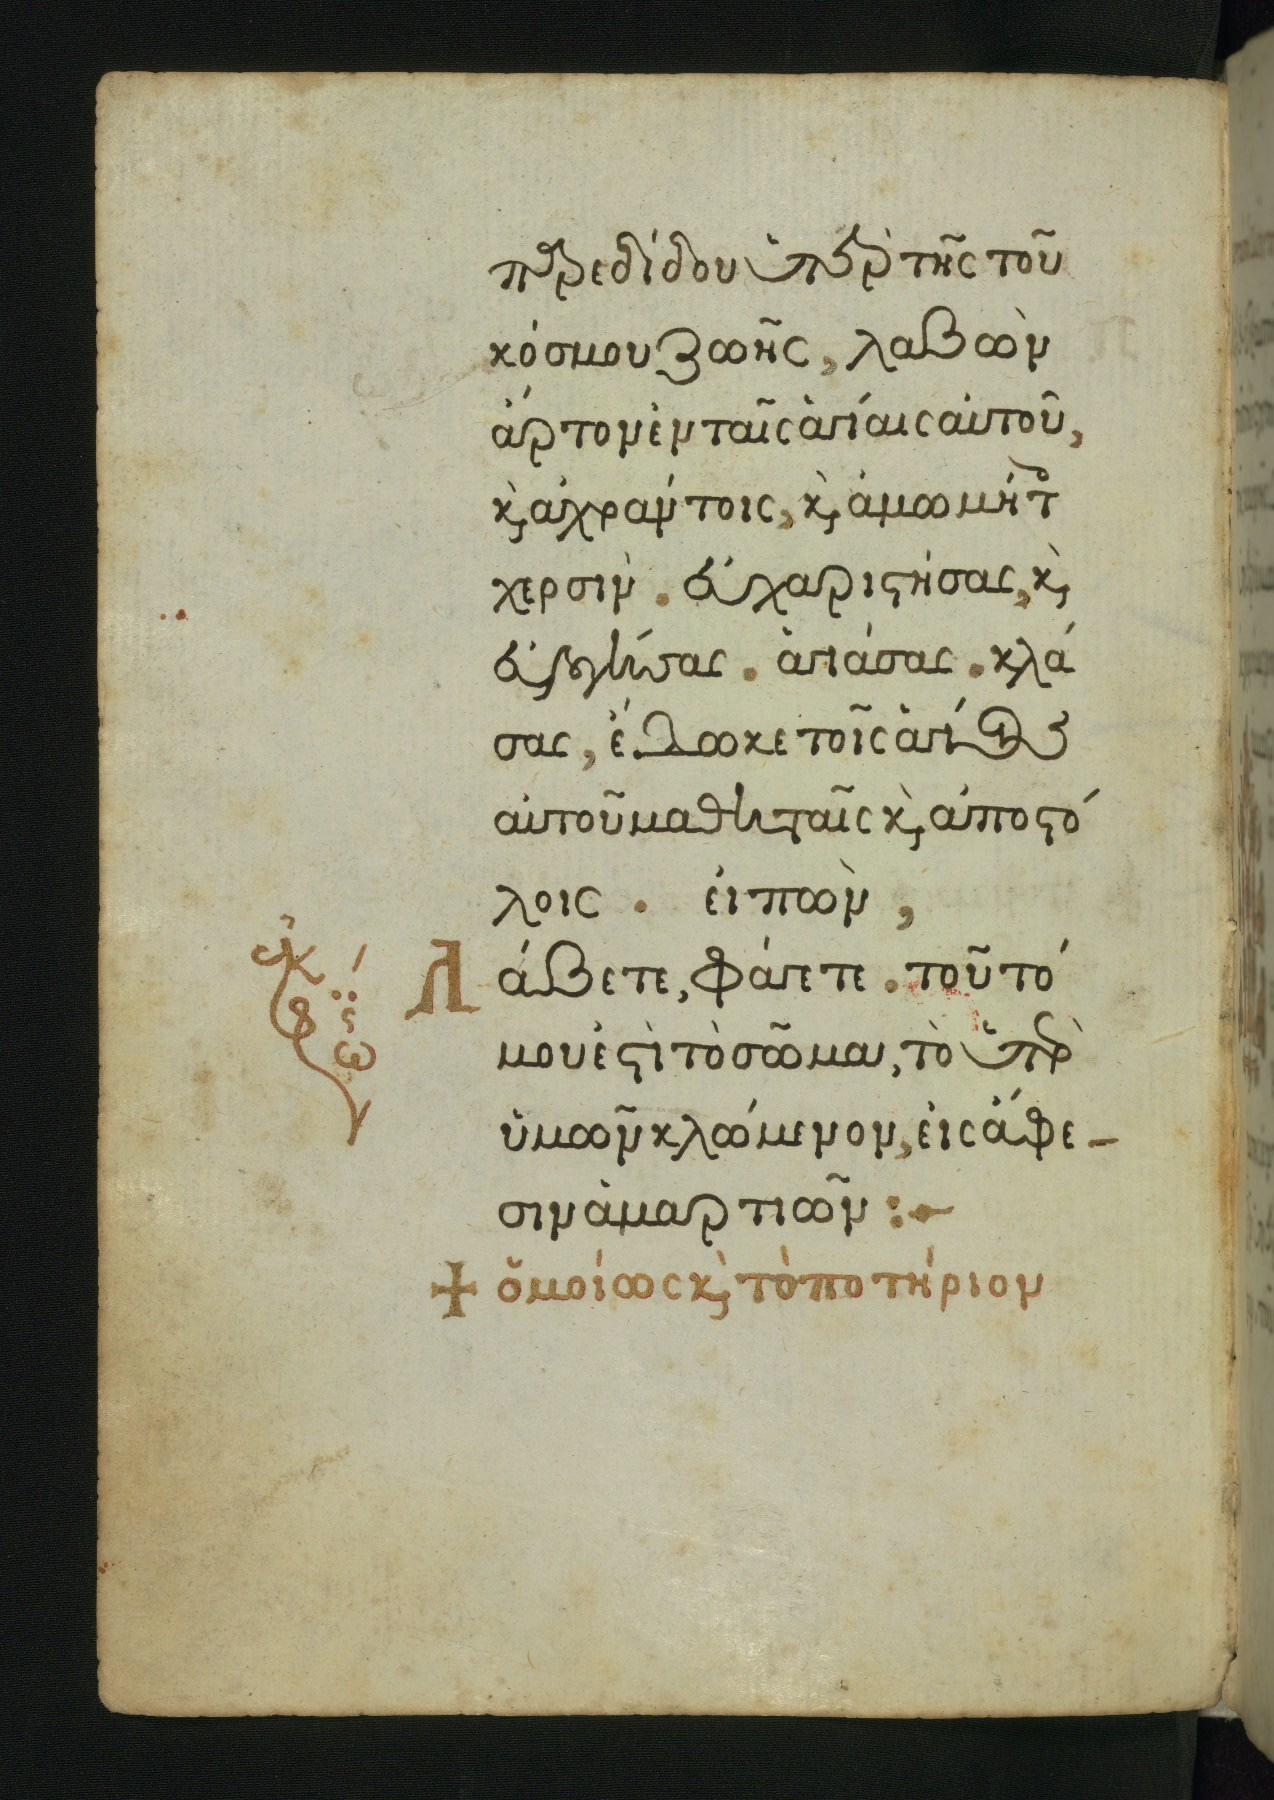 παρεδίδου ὑπὲρ τῆς τοῦ
κόσμου ζωῆς, λαβὼν
ἄρτον ἐν ταῖς ἁγίαις αὐτοῦ,
κ̀, ἀχράντοις, κ̀, ἀμωμήτοις
χερσὶν. εὐχαριστήσας, κ̀,
εὐλογήσας. ἁγιάσας. κλά
σας, ἔδωκε τοῖς ἁγίοις
αὐτοῦ μαθηταῖς κ̀, ἀποστό
λοις. εἰπὼν,
Λάβετε, φάγετε. τοῦτό
μου ἐστὶ τὸ σῶμα, τὸ ὑπὲρ
ὑμῶν κλώμενον, εἰς ἄφε-
σιν ἁμαρτιῶν :
+ ὁμοίως κ̀, τὸ ποτήριον